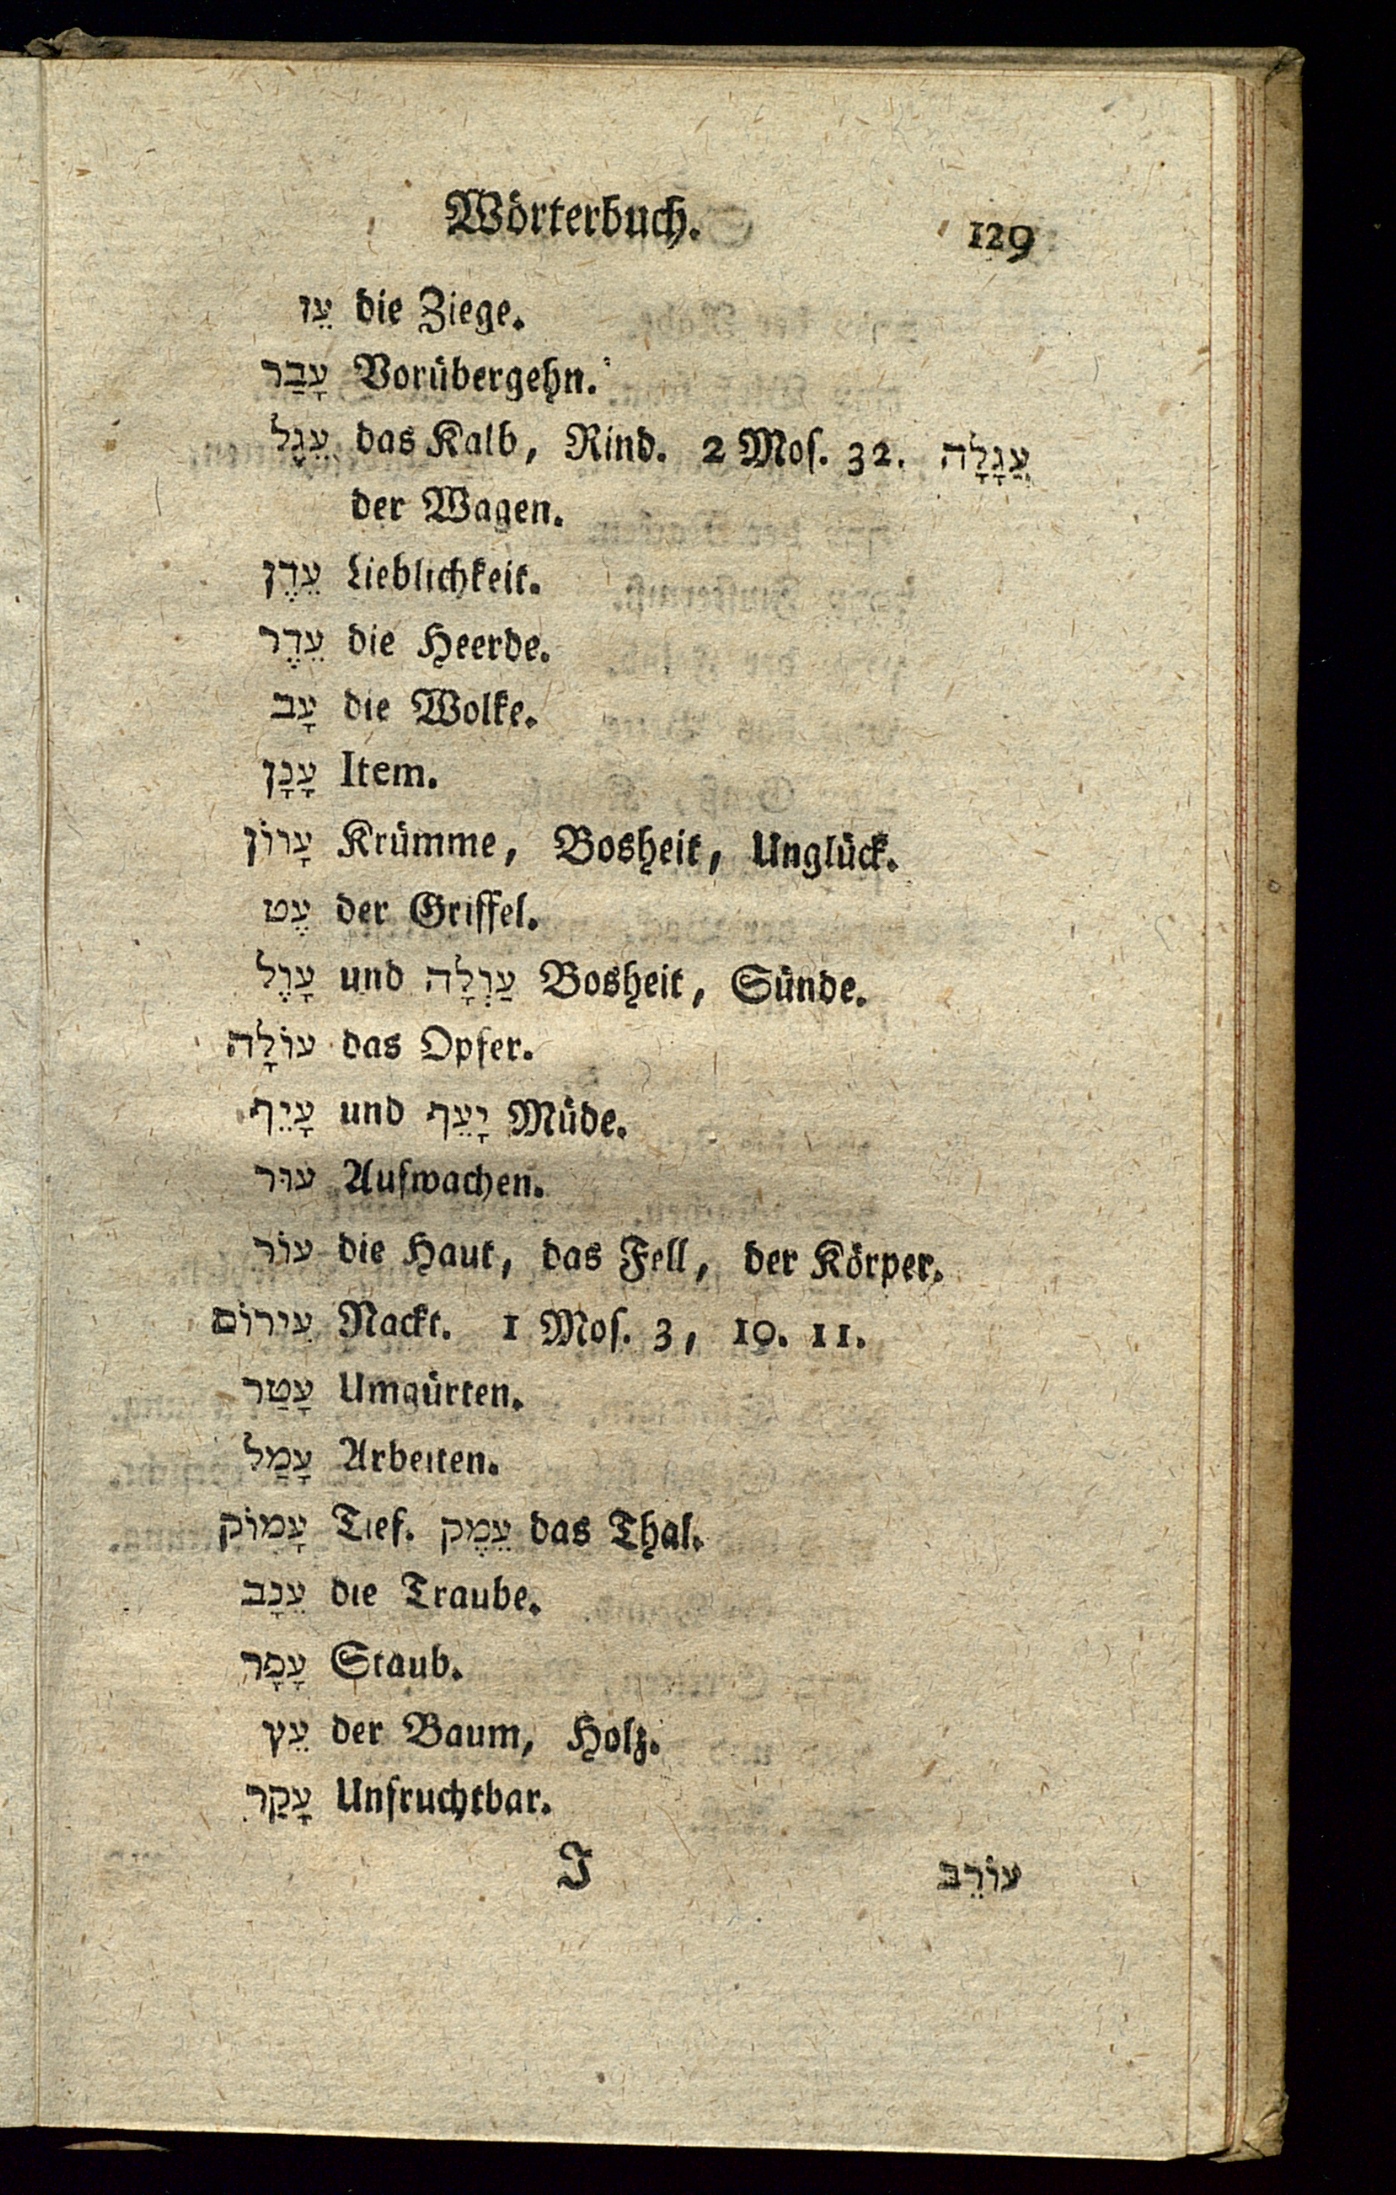 Wörterbuch. 129
עֵז die Ziege.
עָבַר Vorübergehn.
עֵגֶל das Kalb, Rind. 2 Mos. 32. עֲגָלָה
der Wagen.
עֵדֶן Lieblichkeit.
עֵדֶר die Heerde.
עָב die Wolke.
עָנָן Item.
עָרוֹן Krümme, Bosheit, Unglück.
עֶט der Griffel.
עָרֶל und עַרְלָה Bosheit, Sünde.
עוֹלָה das Opfer.
עָיֵף und יָעֵף Müde.
עוּר Aufwachen.
עוֹר die Haut, das Fell, der Körper.
עִירוֹם Nackt. 1 Mos. 3, 10. 11.
עָטַר Umgürten.
עָמַל Arbeiten.
עָמוֹק Tief. עֵמֶק das Thal.
עֵנָב die Traube.
עָפָר Staub.
עֵץ der Baum, Holz.
עָקַר Unfruchtbar.
J עוֹרֵב